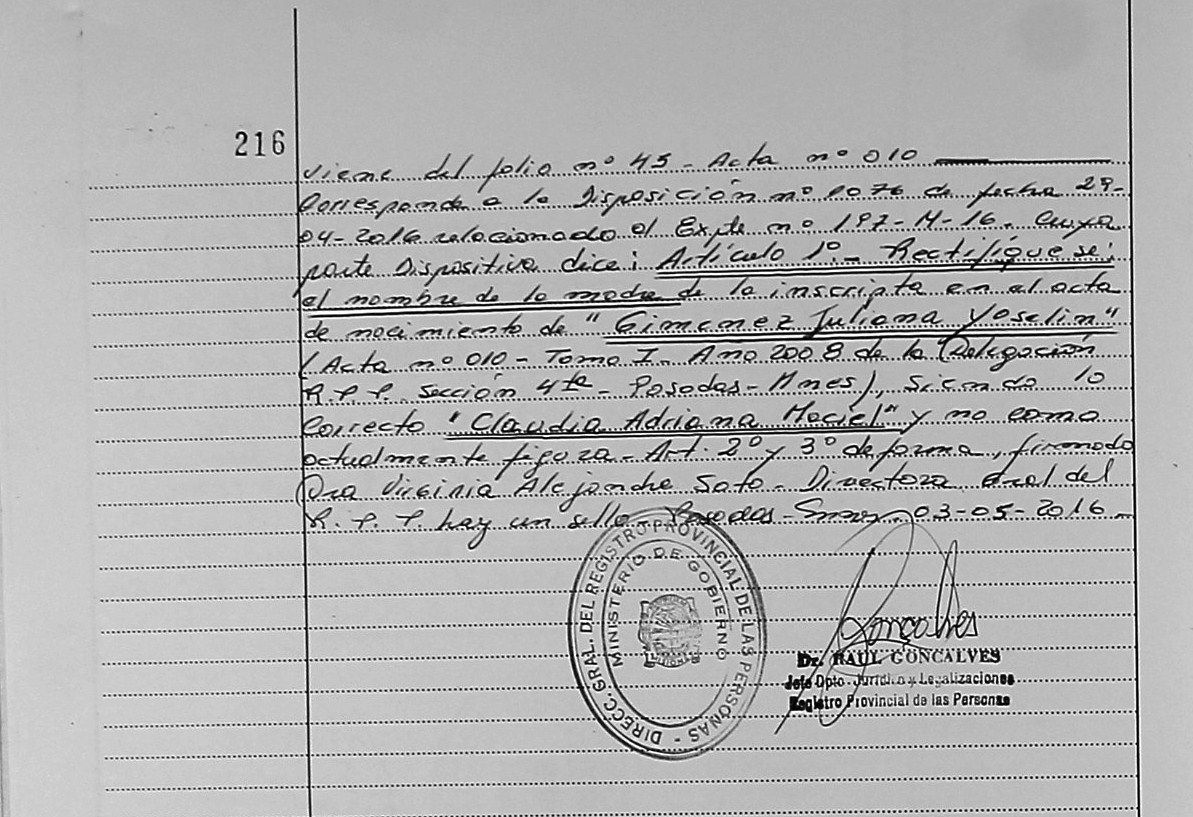 216
Viene del folio nº 45 - Acta nº 010
Corresponde a la Disposición nº 1076 de fecha 29-
04-2016 relacionado al Expte nº 197-M-16. cuya
parte Dispositiva dice: Artículo 1º.- Rectifíquese:
el nombre de la madre de la inscripta en el acta
de nacimiento de "Gimenez Juliana Yoselin"
(Acta nº 010 - Tomo I - Año 2008 de la Delegación
R.P.P. Sección 4ta - Posadas - Mnes), Siendo lo
Correcto "Claudia Adriana Maciel" y no como
actualmente figura - Art. 2º y 3º de forma, firmado
Dra Virginia Alejandra Soto - Directora Gral del
R.P.P hay un sello. Posadas - 03-05-2016
DIRECC. GRAL. DEL REGISTRO PROVINCIAL DE LAS PERSONAS -
MINISTERIO DE GOBIERNO
MISIONES
Goncalves
Dr. RAUL GONCALVES
Jefe Dpto. Jurídico y Legalizaciones
Registro Provincial de las Personas